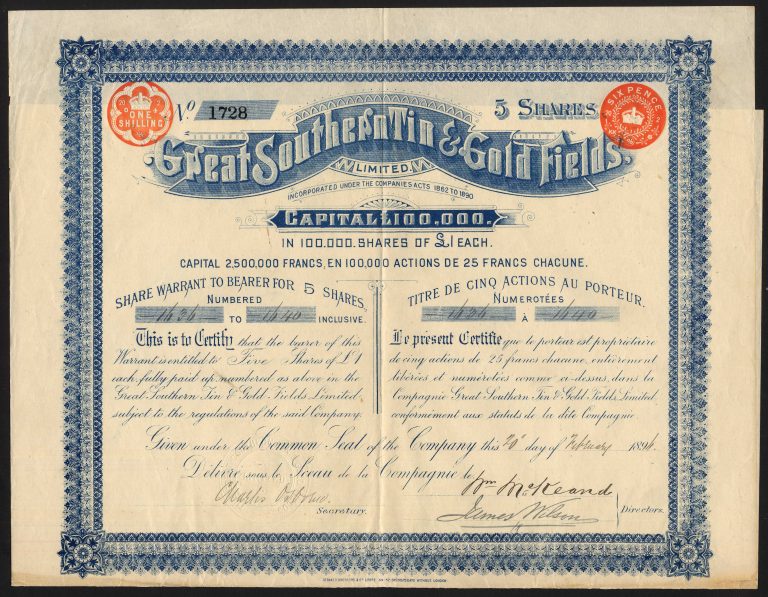 ONE
SHILLING
No. 1728
5 SHARES
SIX PENCE
Great Southern Tin & Gold Fields
LIMITED.
INCORPORATED UNDER THE COMPANIES ACTS 1862 TO 1890
CAPITAL £100,000.
IN 100.000. SHARES OF £1 EACH.
CAPITAL 2,500,000 FRANCS, EN 100,000 ACTIONS DE 25 FRANCS CHACUNE.
SHARE WARRANT TO BEARER FOR 5 SHARES,
NUMBERED
1636 TO 1640 INCLUSIVE.
This is to Certify that the bearer of this
Warrant is entitled to Five Shares of £1
each, fully paid up, numbered as above in the
Great Southern Tin & Gold Fields Limited,
subject to the regulations of the said Company.
TITRE DE CINQ ACTIONS AU PORTEUR.
NUMEROTÉES
1636 À 1640
Le présent Certifie que le porteur est propriétaire
de cinq actions de 25 francs chacune, entièrement
libérées et numérotées comme ci-dessus, dans la
Compagnie Great Southern Tin & Gold Fields, Limited,
conformément aux statuts de la dite Compagnie.
Given under the Common Seal of the Company this 20 day of February 1894.
Délivré sous le Sceau de la Compagnie le
Charles Osborne
Secretary.
Wm McKeand
James Wilson
Directors.